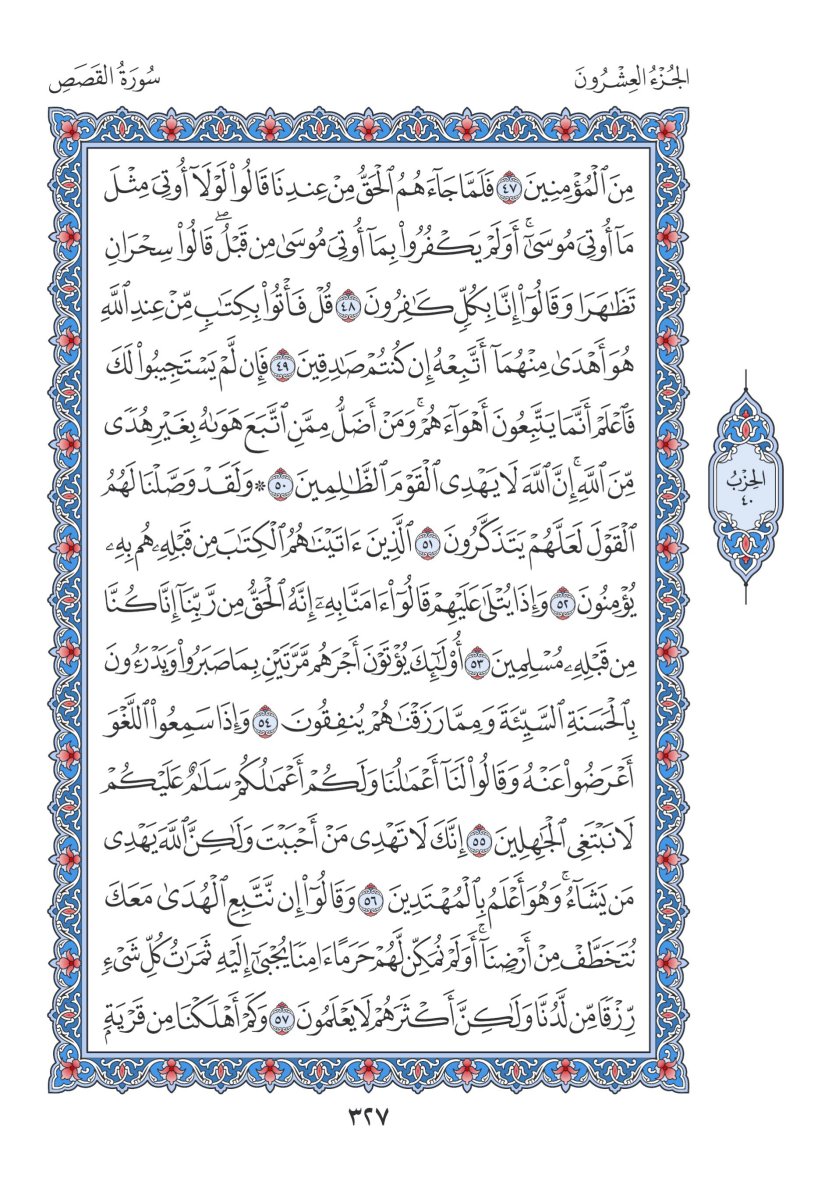 الجُزْءُ العِشْرُونَ
سُورَةُ القَصَصِ
مِنَ ٱلْمُؤْمِنِينَ ٤٧ فَلَمَّا جَآءَهُمُ ٱلْحَقُّ مِنْ عِندِنَا قَالُوا۟ لَوْلَآ أُوتِىَ مِثْلَ
مَآ أُوتِىَ مُوسَىٰٓ ۚ أَوَلَمْ يَكْفُرُوا۟ بِمَآ أُوتِىَ مُوسَىٰ مِن قَبْلُ ۖ قَالُوا۟ سِحْرَانِ
تَظَـٰهَرَا وَقَالُوٓا۟ إِنَّا بِكُلٍّ كَـٰفِرُونَ ٤٨ قُلْ فَأْتُوا۟ بِكِتَـٰبٍ مِّنْ عِندِ ٱللَّهِ
هُوَ أَهْدَىٰ مِنْهُمَآ أَتَّبِعْهُ إِن كُنتُمْ صَـٰدِقِينَ ٤٩ فَإِن لَّمْ يَسْتَجِيبُوا۟ لَكَ
فَٱعْلَمْ أَنَّمَا يَتَّبِعُونَ أَهْوَآءَهُمْ ۚ وَمَنْ أَضَلُّ مِمَّنِ ٱتَّبَعَ هَوَىٰهُ بِغَيْرِ هُدًى
مِّنَ ٱللَّهِ ۚ إِنَّ ٱللَّهَ لَا يَهْدِى ٱلْقَوْمَ ٱلظَّـٰلِمِينَ ٥٠ ۞ وَلَقَدْ وَصَّلْنَا لَهُمُ
ٱلْقَوْلَ لَعَلَّهُمْ يَتَذَكَّرُونَ ٥١ ٱلَّذِينَ ءَاتَيْنَـٰهُمُ ٱلْكِتَـٰبَ مِن قَبْلِهِۦ هُم بِهِۦ
يُؤْمِنُونَ ٥٢ وَإِذَا يُتْلَىٰ عَلَيْهِمْ قَالُوٓا۟ ءَامَنَّا بِهِۦٓ إِنَّهُ ٱلْحَقُّ مِن رَّبِّنَآ إِنَّا كُنَّا
مِن قَبْلِهِۦ مُسْلِمِينَ ٥٣ أُو۟لَـٰٓئِكَ يُؤْتَوْنَ أَجْرَهُم مَّرَّتَيْنِ بِمَا صَبَرُوا۟ وَيَدْرَءُونَ
بِٱلْحَسَنَةِ ٱلسَّيِّئَةَ وَمِمَّا رَزَقْنَـٰهُمْ يُنفِقُونَ ٥٤ وَإِذَا سَمِعُوا۟ ٱللَّغْوَ
أَعْرَضُوا۟ عَنْهُ وَقَالُوا۟ لَنَآ أَعْمَـٰلُنَا وَلَكُمْ أَعْمَـٰلُكُمْ سَلَـٰمٌ عَلَيْكُمْ
لَا نَبْتَغِى ٱلْجَـٰهِلِينَ ٥٥ إِنَّكَ لَا تَهْدِى مَنْ أَحْبَبْتَ وَلَـٰكِنَّ ٱللَّهَ يَهْدِى
مَن يَشَآءُ ۚ وَهُوَ أَعْلَمُ بِٱلْمُهْتَدِينَ ٥٦ وَقَالُوٓا۟ إِن نَّتَّبِعِ ٱلْهُدَىٰ مَعَكَ
نُتَخَطَّفْ مِنْ أَرْضِنَآ ۚ أَوَلَمْ نُمَكِّن لَّهُمْ حَرَمًا ءَامِنًا يُجْبَىٰٓ إِلَيْهِ ثَمَرَٰتُ كُلِّ شَىْءٍ
رِّزْقًا مِّن لَّدُنَّا وَلَـٰكِنَّ أَكْثَرَهُمْ لَا يَعْلَمُونَ ٥٧ وَكَمْ أَهْلَكْنَا مِن قَرْيَةٍۭ
الحِزْبُ
٤٠
٣٢٧